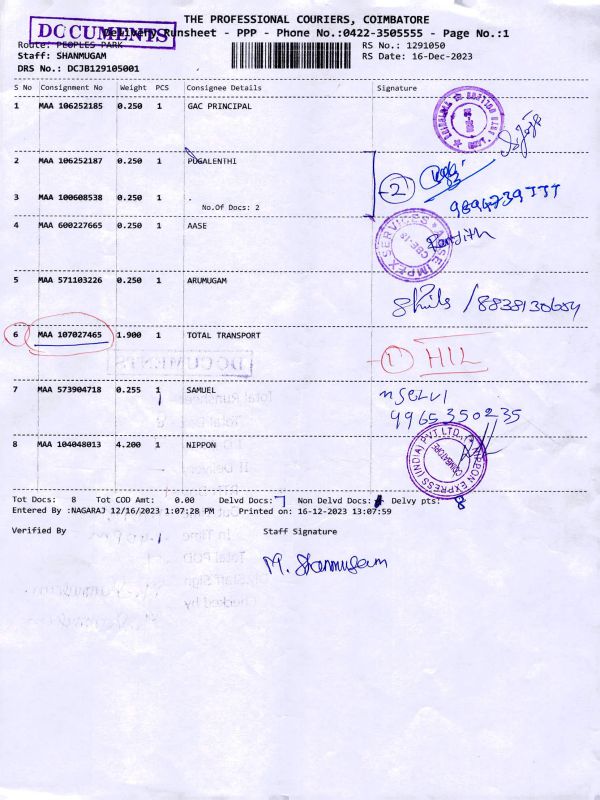 THE PROFESSIONAL COURIERS, COIMBATORE
DOCUMENTS
Delivery Runsheet - PPP - Phone No.:0422-3505555 - Page No.:1
Route: PEOPLES PARK
RS No.: 1291050
Staff: SHANMUGAM
RS Date: 16-Dec-2023
DRS No.: DCJB129105001
S No Consignment No Weight PCS Consignee Details Signature
1 MAA 106252185 0.250 1 GAC PRINCIPAL
2 MAA 106252187 0.250 1 PUGALENTHI
2
3 MAA 100608538 0.250 1 .
No.Of Docs: 2
4 MAA 600227665 0.250 1 AASE
AASE IMPEX SERVICES
CBE-18
5 MAA 571103226 0.250 1 ARUMUGAM
/8838130684
6 MAA 107027465 1.900 1 TOTAL TRANSPORT
1 HIL
7 MAA 573904718 0.255 1 SAMUEL
9965350235
8 MAA 104048013 4.200 1 NIPPON
NIPPON EXPRESS (INDIA) PVT.LTD.,
COIMBATORE
Tot Docs: 8 Tot COD Amt: 0.00 Delvd Docs: 7 Non Delvd Docs: Delvy pts: 8
Entered By :NAGARAJ 12/16/2023 1:07:28 PM Printed on: 16-12-2023 13:07:59
Verified By Staff Signature
M. Shanmugam